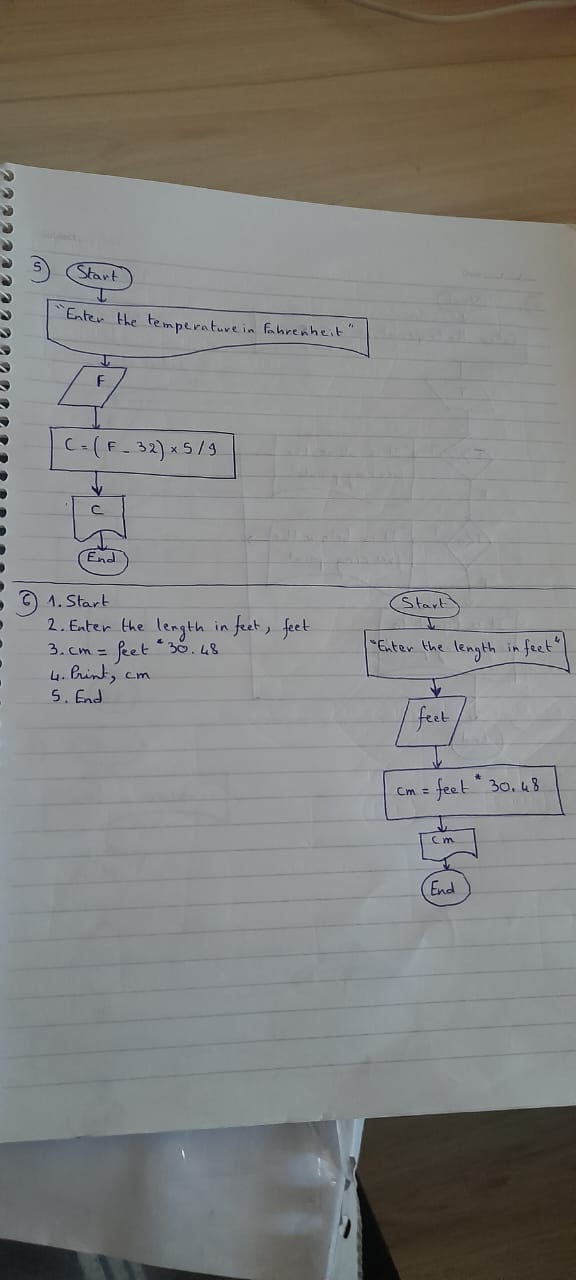 5) Start
"Enter the temperature in Fahrenheit"
F
C = (F - 32) × 5/9
C
End
6) 1. Start
2. Enter the length in feet, feet
3. cm = feet * 30.48
4. Print, cm
5. End
Start
"Enter the length in feet"
feet
cm = feet * 30.48
cm
End